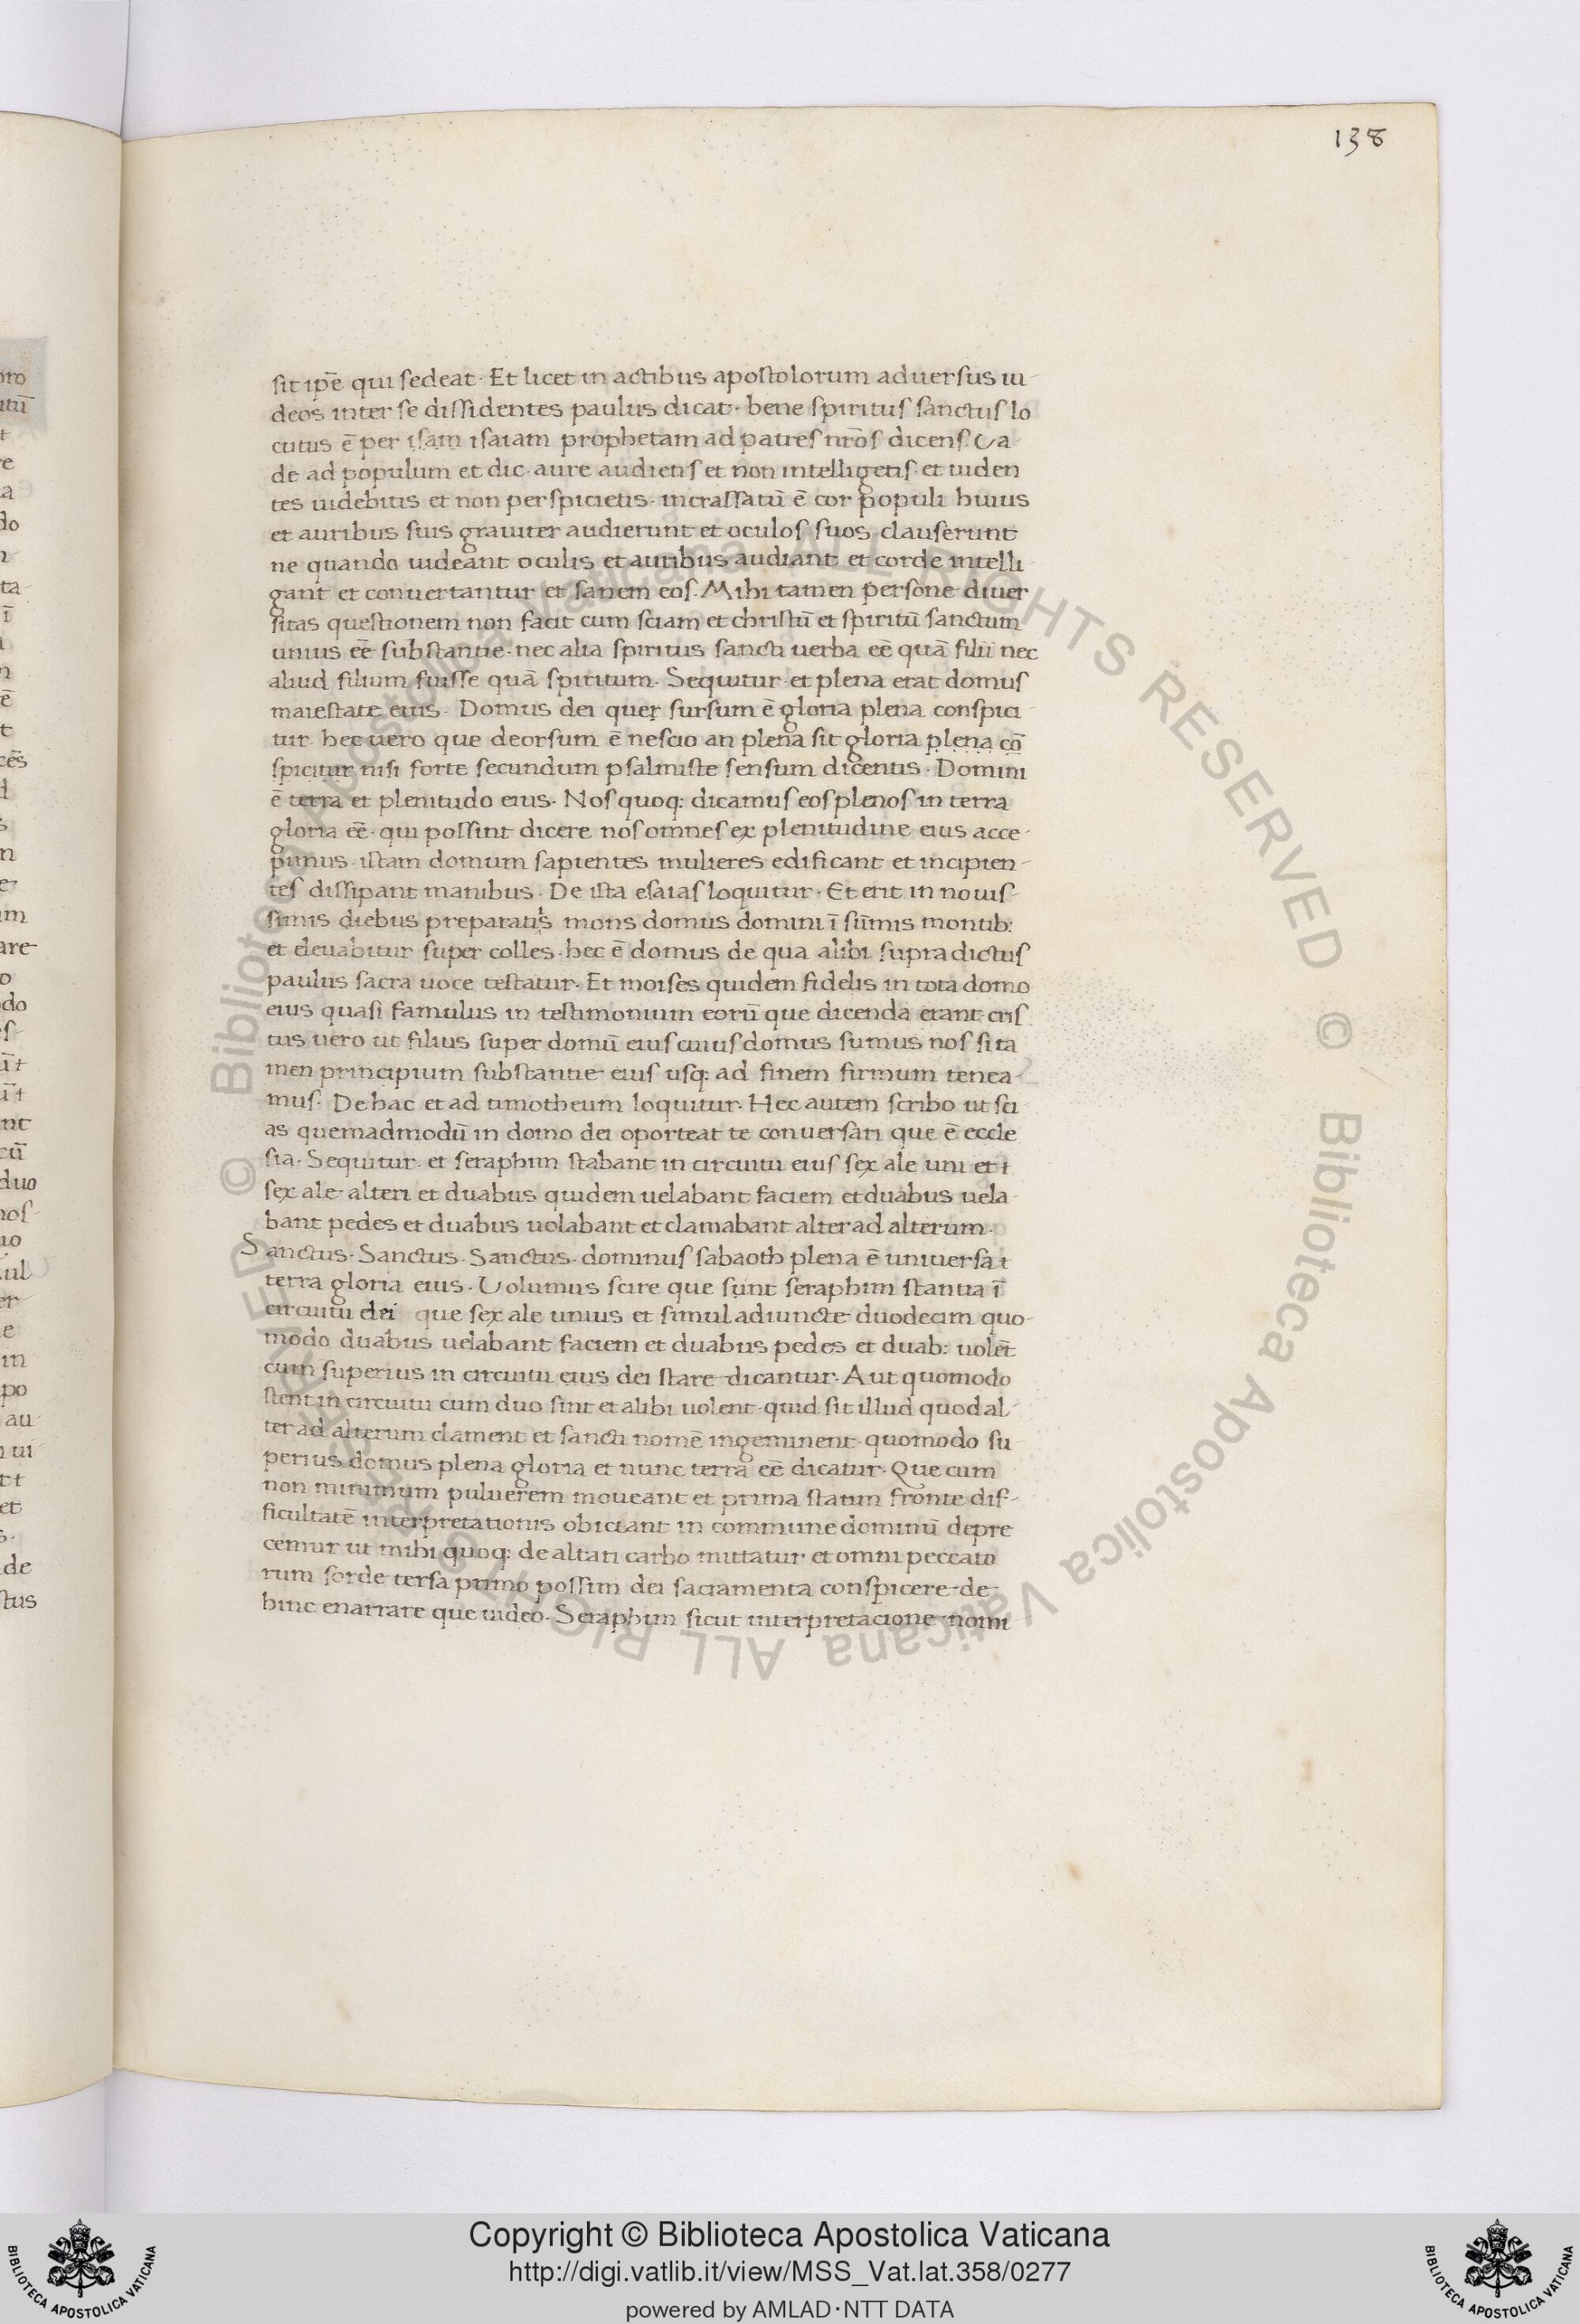 138
sit ip̄e qui sedeat· Et licet in actibus apostolorum aduersus iu-
deos inter se dissidentes paulus dicat· bene spiritus sanctus lo
cutus ē per isam isaiam prophetam ad patres nr̄os dicens Va
de ad populum et dic· aure audiens et non intelligetis· et uiden
tes uidebitis et non perspicietis· incrassatū ē cor populi huius
et auribus suis grauiter audierunt et oculos suos clauserunt
ne quando uideant oculis et auribus audiant et corde intelli
gant et conuertantur et sanem eos· Mihi tamen persone diuer
sitas questionem non facit cum sciam et christū et spiritū sanctum
unius eē substantie· nec alia spiritus sancti uerba eē quā filii nec
aliud filium fuisse quā spiritum· Sequitur· et plena erat domus
maiestate eius· Domus dei quer sursum ē gloria plena conspici
tur· hec uero que deorsum ē nescio an plena sit gloria plena cō
spicitur nisi forte secundum psalmiste sensum dicentis· Domini
ē terra et plenitudo eius· Nos quoq: dicamus eos plenos in terra
gloria eē· qui possint dicere nos omnes ex plenitudine eius acce-
pimus· istam domum sapientes mulieres edificant et incipien-
tes dissipant manibus· De ista esaias loquitur· Et erit in nouis-
simis diebus preparatus mons domus domini ī sūmis montib:
et eleuabitur super colles· hec ē domus de qua alibi supradictus
paulus sacra uoce testatur· Et moises quidem fidelis in tota domo
eius quasi famulus in testimonium eorū que dicenda erant· cris
tus uero ut filius super domū eius cuius domus sumus nos si ta
men principium substantie eius usq: ad finem firmum tenea-
mus· De hac et ad timotheum loquitur· Hec autem scribo ut sci
as quemadmodū in domo dei oporteat te conuersari que ē eccle
sia· Sequitur· et seraphim stabant in circuitu eius sex ale uni et t
sex ale alteri et duabus quidem uelabant faciem et duabus uela
bant pedes et duabus uolabant et clamabant alter ad alterum·
Sanctus· Sanctus· Sanctus· dominus sabaoth plena ē uniuersa t
terra gloria eius· Volumus scire que sunt seraphim stantia ī
circuitu dei que sex ale unius et simul adiuncte duodecim quo-
modo duabus uelabant faciem et duabus pedes et duab: uolēt
cum superius in circuitu eius dei stare dicantur· Aut quomodo
stent in circuitu cum duo sint et alibi uolent· quid sit illud quod al-
ter ad alterum clament et sancti nomē ingeminent· quomodo su
perius domus plena gloria et nunc terra eē dicatur· Que cum
non minimum puluerem moueant et prima statim fronte dif-
ficultatē interpretationis obiciant in commune dominū depre
cemur ut mihi quoq: de altari carbo mittatur et omni peccato
rum sorde tersa primo possim dei sacramenta conspicere de-
hinc enarrare que uideo· Seraphim sicut interpretacione nomi
Copyright © Biblioteca Apostolica Vaticana
http://digi.vatlib.it/view/MSS_Vat.lat.358/0277
powered by AMLAD·NTT DATA